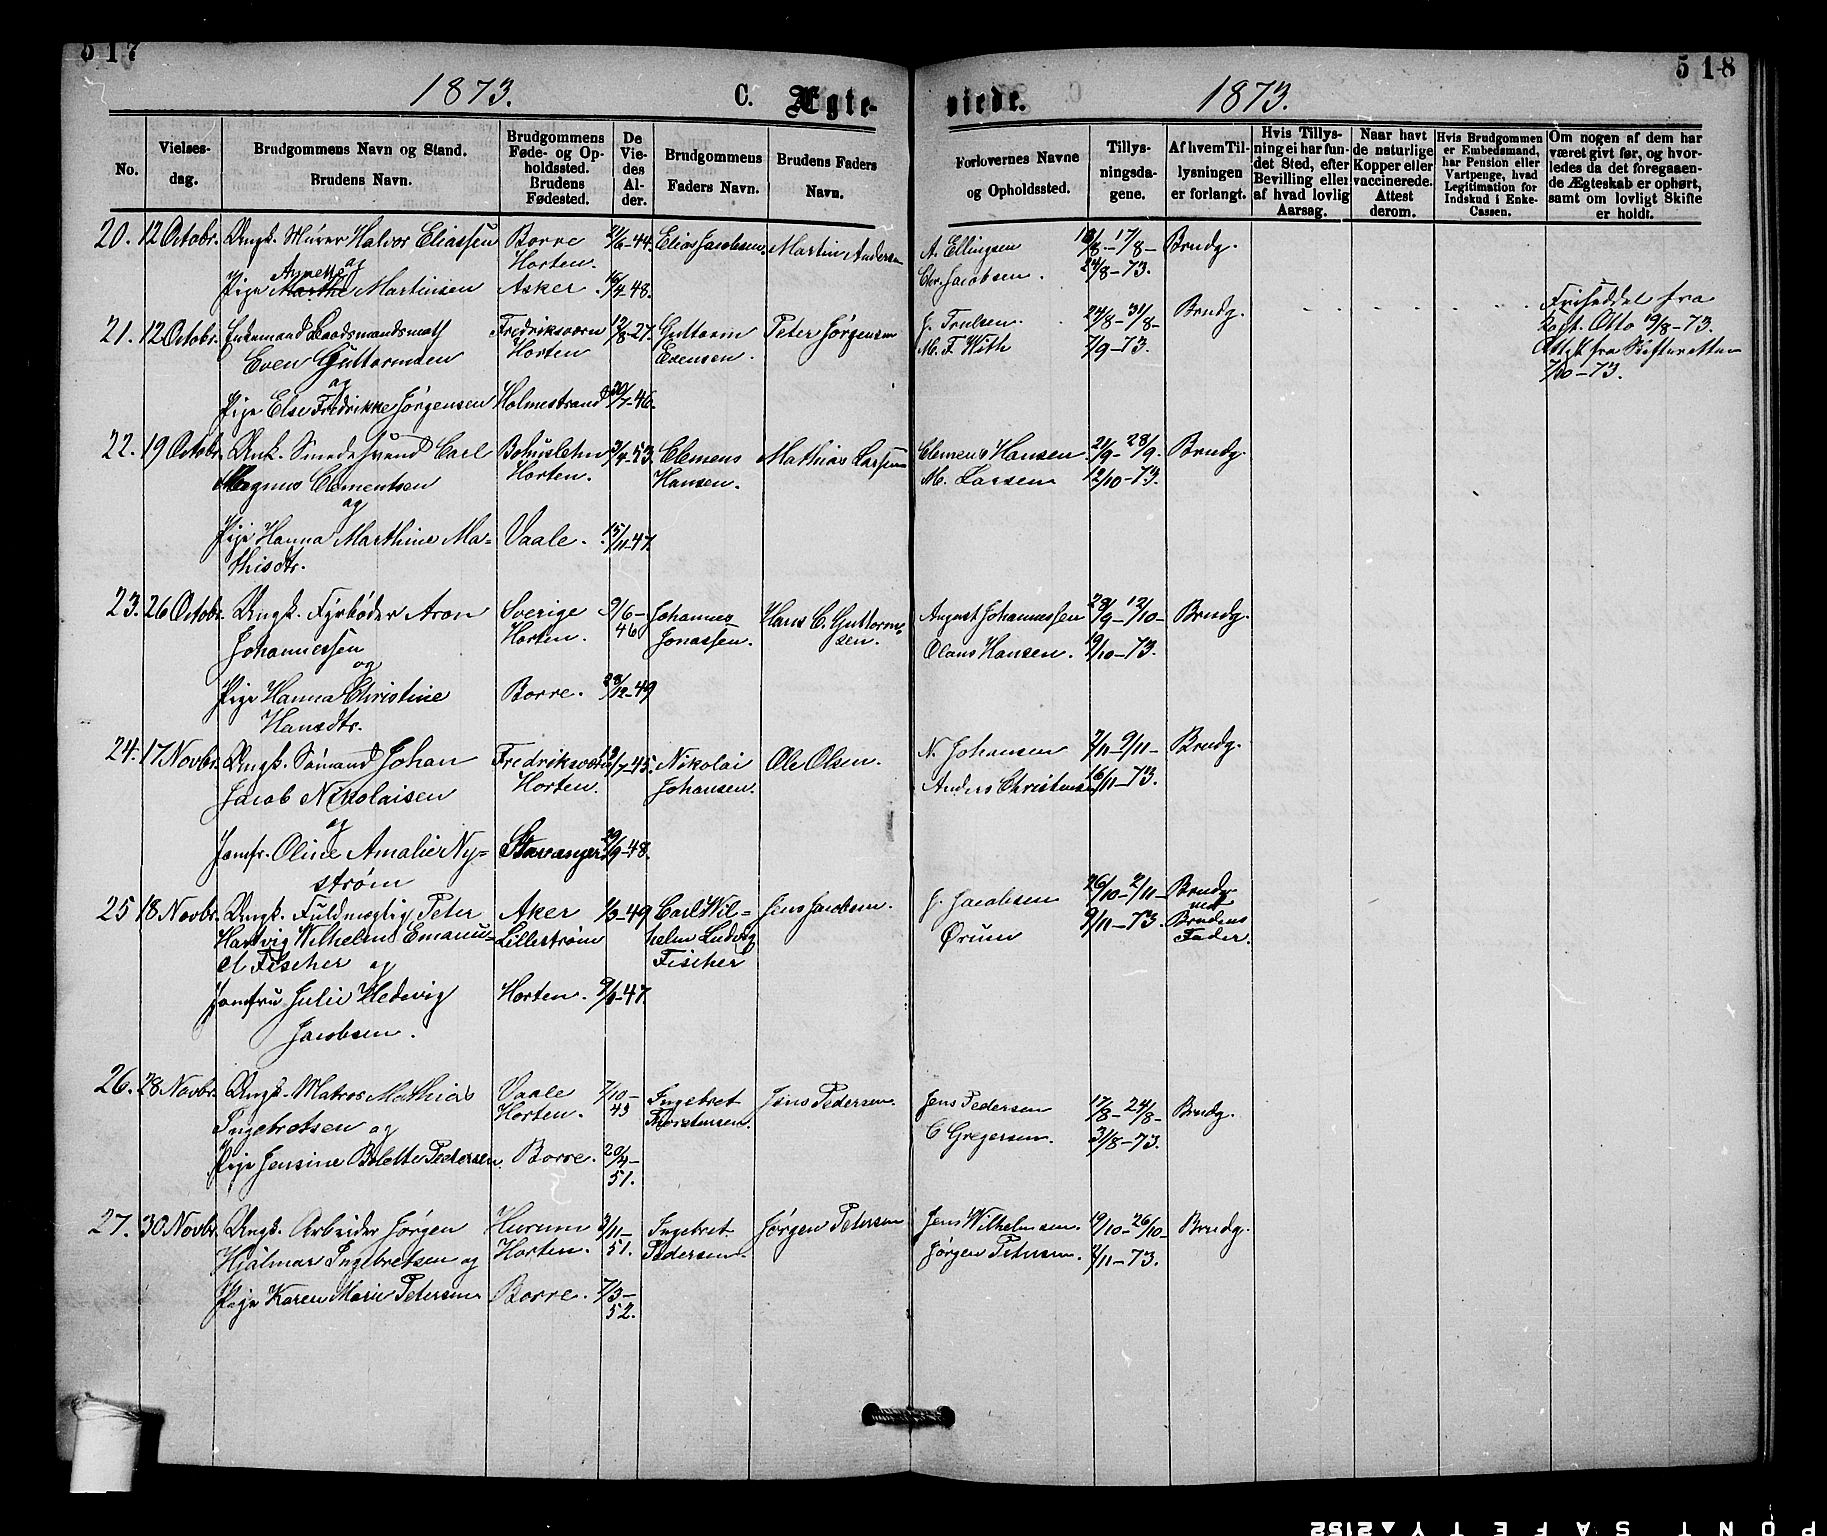 517
518
1873. C. Ægte-
viede. 1873.
No.
Vielses-
dag.
Brudgommens Navn og Stand.
Brudens Navn.
Brudgommens
Føde- og Op-
holdssted.
Brudens
Fødested.
De
Vie-
des
Al-
der.
Brudgommens
Faders Navn.
Brudens Faders
Navn.
Forlovernes Navne
og Opholdssted.
Tillys-
ningsda-
gene.
Af hvem Til-
lysningen
er forlangt.
Hvis Tillys-
ning ei har fun-
det Sted, efter
Bevilling eller
af hvad lovlig
Aarsag.
Naar havt
de naturlige
Kopper eller
vaccinerede.
Attest
derom.
Hvis Brudgommen
er Embedsmand,
har Pension eller
Vartpenge, hvad
Legitimation for
Indskud i Enke-
Cassen.
Om nogen af dem har
været givt før, og hvor-
ledes da det foregaaen-
de Ægteskab er ophørt,
samt om lovligt Skifte
er holdt.
20. 12 Octobr. Ungk. Murer Halvor Eliassen Borre 21/6-44. Elias Jacobsen. Martin Andersen A. Ellingsen 10/8-17/8- Brudg.
og Horten.
Annette
Pige Marthe Martinsen Asker 16/4-48. Chr. Jacobsen. 24/8-73.
21. 12 Octobr. Enkemand Baadsmandsmath Fredriksværn 12/8-27. Guttorm Peter Jørgensen J. Trulsen. 24/8-31/8- Brudg. Friseddel fra
Even Guttormsen Horten Evensen. M. F. With 7/9-73. Kapt. Otto 19/8-73.
og Attest fra Skifteretten
7/10-73.
Pige Else Fredrikke Jørgensen Holmestrand 20/7-46.
22. 19 Octobr. Unk. Smedesvend Carl Bohuslehn 3/4-53. Clemens Mathias Larsen Clemens Hansen 21/9-28/9. Brudg.
Magnus Clementsen Horten. Hansen. M. Larsen 12/10-73.
og
Pige Hanna Marthine Ma- Vaale. 15/11-47.
thisdtr.
23. 26 Octobr. Ungk. Fyrbøder Aron Sverige 9/6- Johannes Hans C. Guttorm- August Johannessen 28/9-12/10- Brudg.
Johannessen Horten. 46 Jonassen. sen. Olaus Hansen. 19/10-73.
og
Pige Hanna Christine Borre. 28/12-49
Hansdtr.
24. 17 Novbr. Ungk. Sømand Johan Fredriksværn /7-45. Nikolai Ole Olsen. N. Johansen 2/11-9/11- Brudg.
Jacob Nikolaisen Horten. Johansen. Anders Christensen 16/11-73.
og
Jomfr. Oline Amalie Ny- Stavanger 29/9-48.
strøm
25 18 Novbr. Ungk. Fuldmægtig Peter Aker /3-49 Carl Wil- Jens Jacobsen. J. Jacobsen 26/10-2/11- Brudg.
Hartvig Wilhelm Emanu- Lillestrøm helm Ludvig Ørum 9/11-73. med
el Fischer og Fischer Brudens
Fader.
Jomfru Julie Hedevig Horten. -47.
Jacobsen.
26. 28 Novbr. Ungk. Matros Mathias Vaale 7/10- Ingebret Jens Pedersen. Jens Pedersen 17/8-24/8- Brudg.
Ingebretsen og Horten. 43 Thorstensen. C Gregersen. 31/8-73.
Pige Jensine Bolette Pedersen. Borre. 20/4-
51.
27. 30 Novbr. Ungk. Arbeider Jørgen Hurum 3/11- Ingebret Jørgen Petersen Jens Wilhelmsen. 19/10-26/10- Brudg.
Hjalmar Ingebretsen og Horten. 51. Pedersen. Jørgen Petersen. 2/11-73.
Pige Karen Marie Petersen Borre. 7/3-
52.
PONT SAFETY ▲ 2152